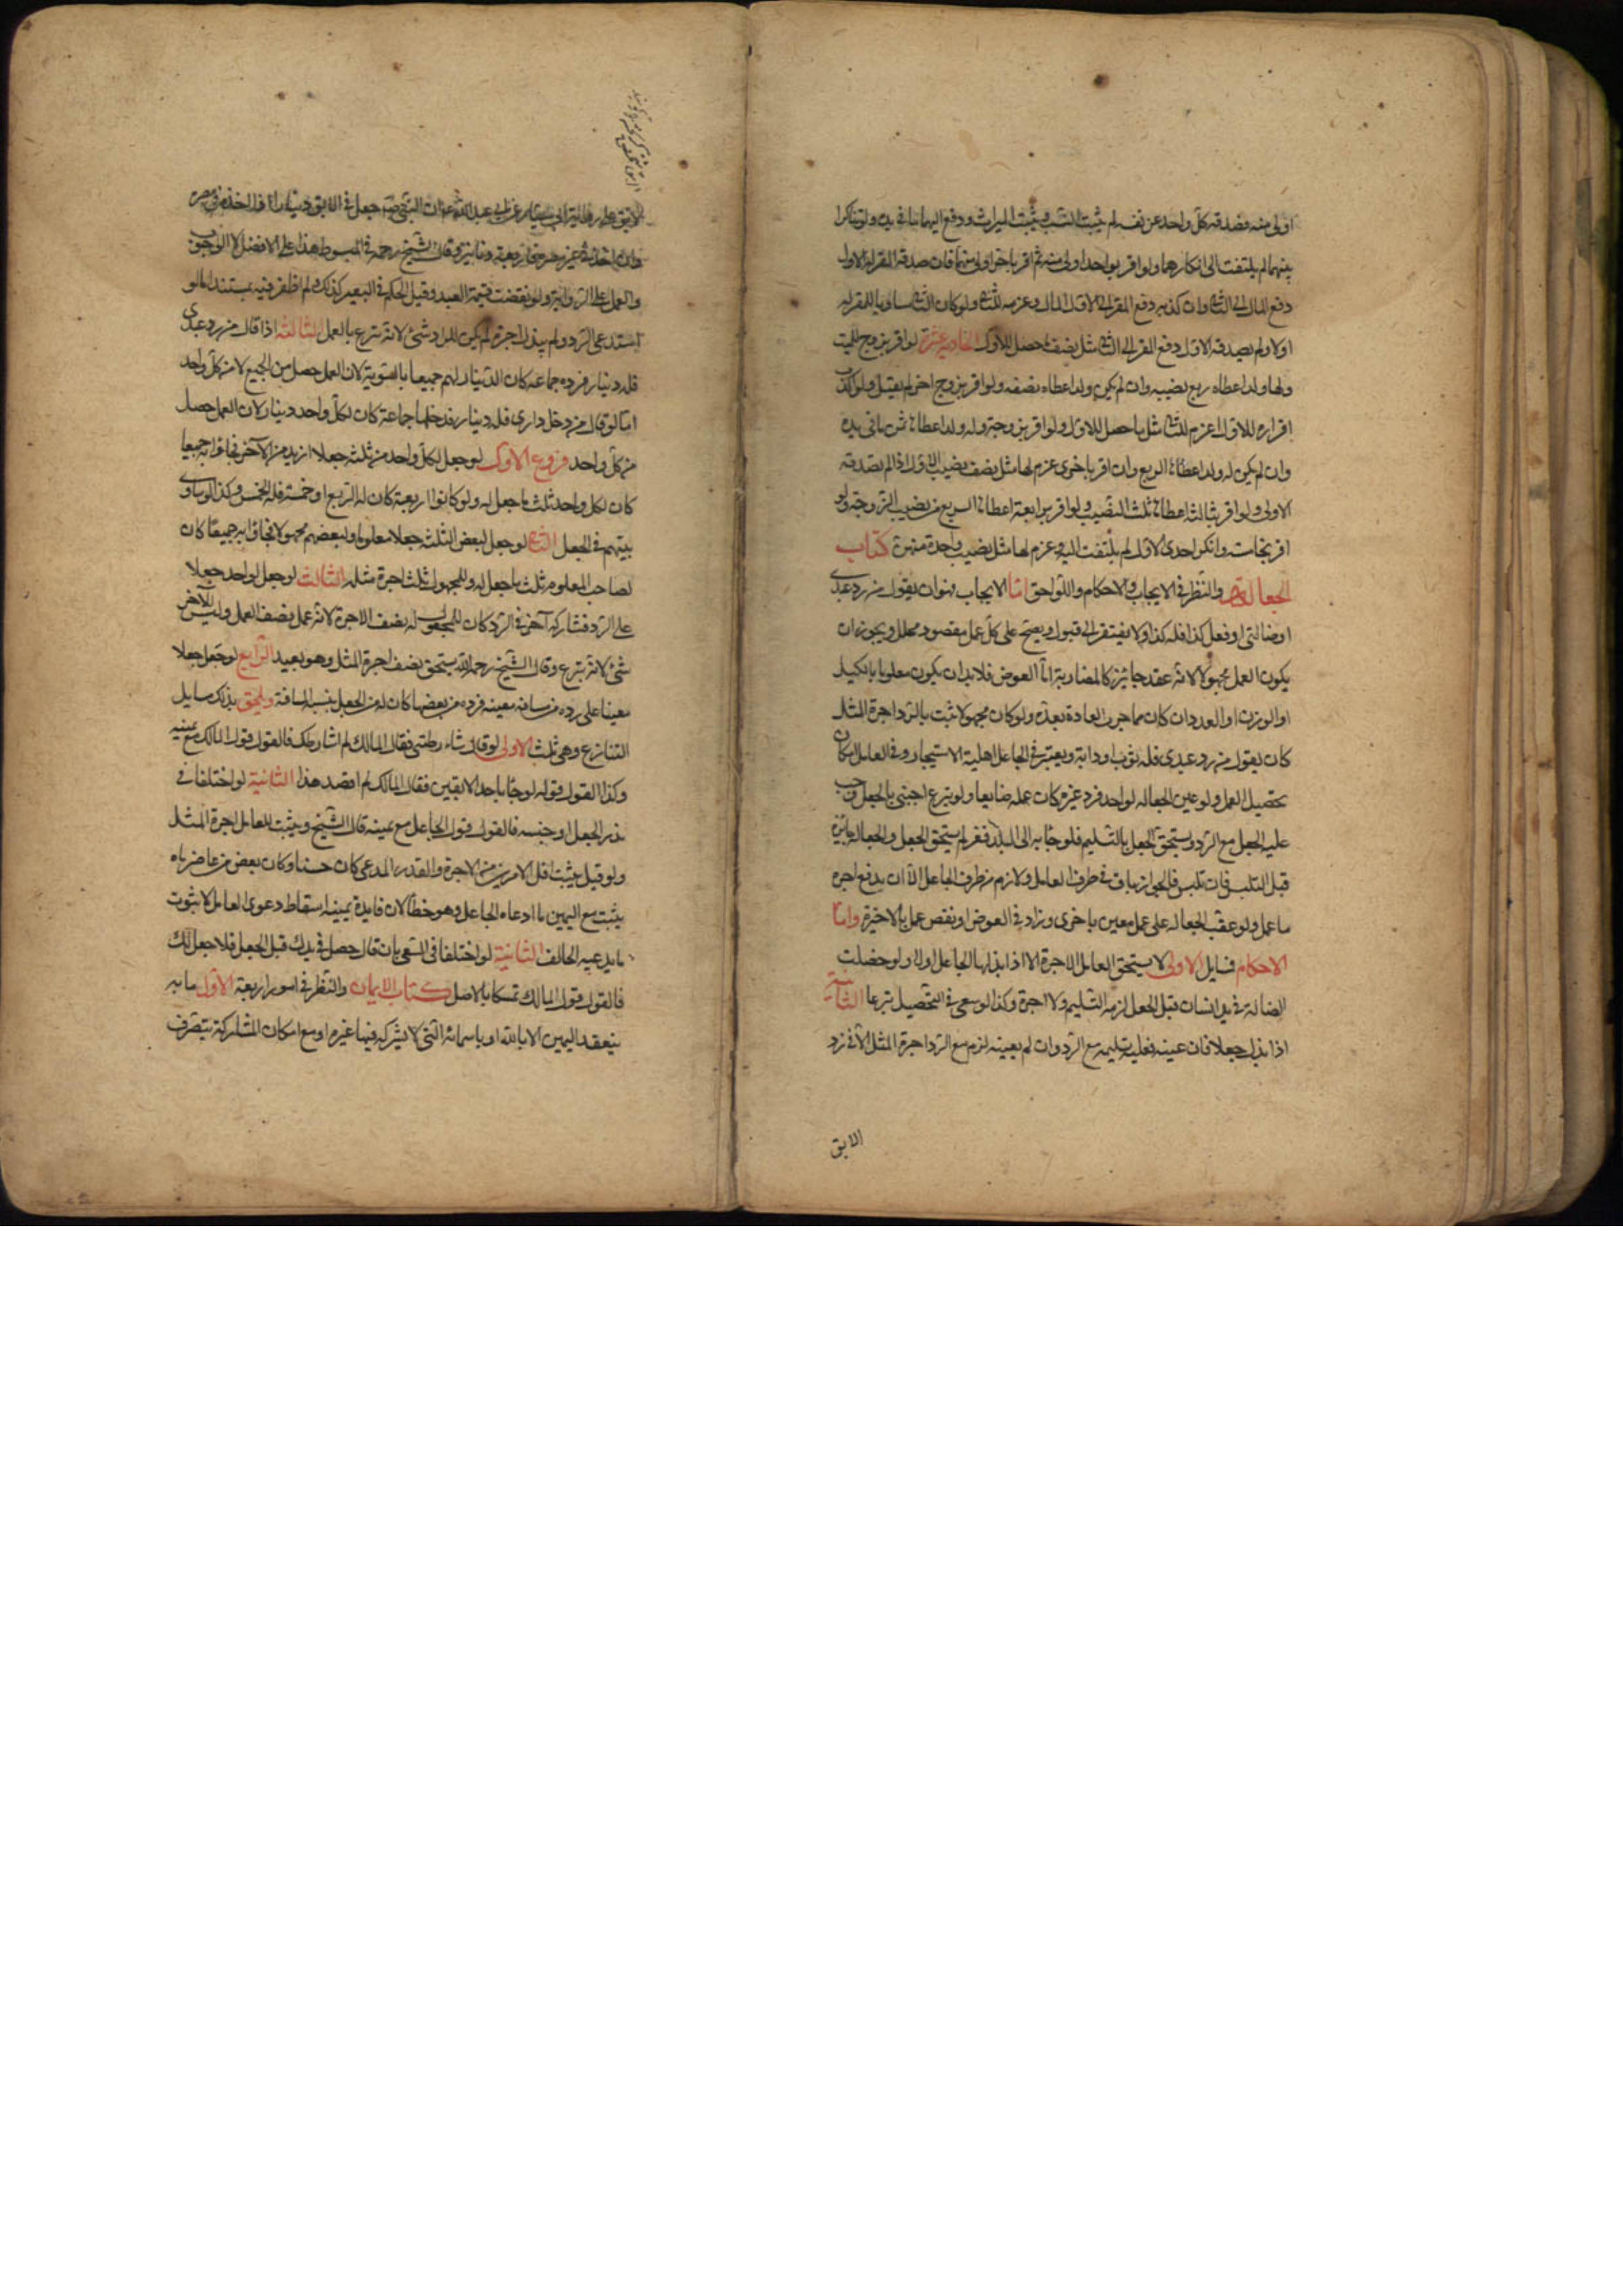 اولى منه فصدقه كل واحد عن نفسه لم يثبت النسب ويثبت الميراث ودفع اليهما ما في يده ولو تناكرا
بينهما لم يلتفت الى انكارهما ولو اقر بواحد اولى منه ثم اقر باخر اولى منهما فان صدقه المقر له الاول
دفع المال الى الثاني وان كذبه دفع المقر الى الاول المال وغرمه للثاني ولو كان الثاني مساويا للمقر له
اولا ولم يصدقه الاول دفع المقر الى الثاني مثل نصف ما حصل للاول الحادية عشرة لو اقر بزوج للميت
ولها ولد اعطاه ربع نصيبه وان لم يكن ولد اعطاه نصفه ولو اقر بزوج اخر لم يقبل ولو اكذب
اقراره للاول اغرم للثاني مثل ما حصل للاول ولو اقر بزوجة وله ولد اعطاها ثمن ما في يده
وان لم يكن له ولد اعطاها الربع وان اقر باخرى غرم لها مثل نصف نصيب الاولى اذا لم تصدقه
الاولى ولو اقر بثالثة اعطاها ثلث النصيب ولو اقر برابعة اعطاها الربع من نصيب الزوجة ولو
اقر بخامسة وانكر احدى الاول لم يلتفت اليه وغرم لها مثل نصيب واحدة منهن كتاب
الجعالة والنظر في الايجاب والاحكام واللواحق اما الايجاب فهو ان يقول من رد عبدى
او ضالتى او فعل كذا فله كذا ولا يفتقر الى قبول ويصح على كل عمل مقصود محلل ويجوز ان
يكون العمل مجهولا لانه عقد جائز كالمضاربة اما العوض فلا بد ان يكون معلوما بالكيل
او الوزن او العدد ان كان مما جرت العادة بعده ولو كان مجهولا ثبت بالرد اجرة المثل
كان يقول من رد عبدى فله ثوب او دابة ويعتبر في الجاعل اهلية الاستيجار وفي العامل امكان
تحصيل العمل ولو عين الجعالة لواحد فرد غيره كان عمله ضايعا ولو تبرع اجنبى بالجعل وجب
عليه الجعل مع الرد ويستحق الجعل بالتسليم فلو جاء به الى البلد ففر لم يستحق الجعل والجعالة جائزة
قبل التلبس فان تلبس فالجواز باق في طرف العامل ولازم من طرف الجاعل الا ان يدفع اجرة
ما عمل ولو عقب الجعالة على عمل معين باخرى وزاد في العوض او نقص عمل بالاخيرة واما
الاحكام فمسايل الاولى لا يستحق العامل الاجرة الا اذا بذلها الجاعل اولا ولو حصلت
الضالة في يد انسان قبل الجعل لزمه التسليم ولا اجرة وكذا لو سعى في التحصيل تبرعا الثانية
اذا بذل جعلا فان عينه فعليه تسليمه مع الرد وان لم يعينه لزم مع الرد اجرة المثل الا في رد
الابق
والعمل على الرواية ولو نقصت قيمة العبد وقيل الحكم في البعير كذلك ولم اظفر فيه بمستند اما لو
استدعى الرد ولم يبذل اجرة لم يكن للراد شئ لانه تبرع بالعمل الثالثة اذا قال من رد عبدى
فله دينار فرده جماعة كان الدينار لهم جميعا بالسوية لان العمل حصل من الجميع لا من كل واحد
اما لو قال من دخل دارى فله دينار فدخلها جماعة كان لكل واحد دينار لان العمل حصل
من كل واحد فروع الاول لو جعل لكل واحد من ثلثة جعلا ازيد من الاخر فجاؤا به جميعا
كان لكل واحد ثلث ما جعل له ولو كانوا اربعة كان له الربع او خمسة فله الخمس وكذا لو ساوى
بينهم في الجعل الثانى لو جعل لبعض الثلثة جعلا معلوما ولبعضهم مجهولا فجاؤا به جميعا كان
لصاحب المعلوم ثلث ما جعل له وللمجهول ثلث اجرة مثله الثالث لو جعل لواحد جعلا
على الرد فشاركه آخر في الرد كان للمجعول له نصف الاجرة لانه عمل نصف العمل وليس للآخر
شئ لانه تبرع وقال الشيخ رحمه الله يستحق نصف اجرة المثل وهو بعيد الرابع لو جعل جعلا
معينا على رده من مسافة معينة فرده من بعضها كان له من الجعل بنسبة المسافة ويلحق بذلك مسايل
التنازع وهى ثلث الاولى لو قال شارطتنى فقال المالك لم اشارطك فالقول قول المالك مع يمينه
وكذا القول قوله لو جاء باحد الابقين فقال المالك لم اقصد هذا الثانية لو اختلفا في
قدر الجعل او جنسه فالقول قول الجاعل مع يمينه قال الشيخ ويثبت للعامل اجرة المثل
ولو قيل يثبت اقل الامرين من الاجرة والقدر المدعى كان حسنا وكان بعض من عاصرناه
يثبت مع اليمين ما ادعاه الجاعل وهو خطأ لان فايدة يمينه اسقاط دعوى العامل لا ثبوت
ما يدعيه الحالف الثانية لو اختلفا في السعى بان قال حصل في يدك قبل الجعل فلا جعل لك
فالقول قول المالك تمسكا بالاصل كتاب الايمان والنظر في امور اربعة الاول ما به
ينعقد اليمين الا بالله او باسمائه التى لا يشركه فيها غيره او مع امكان المشاركة يتصرف